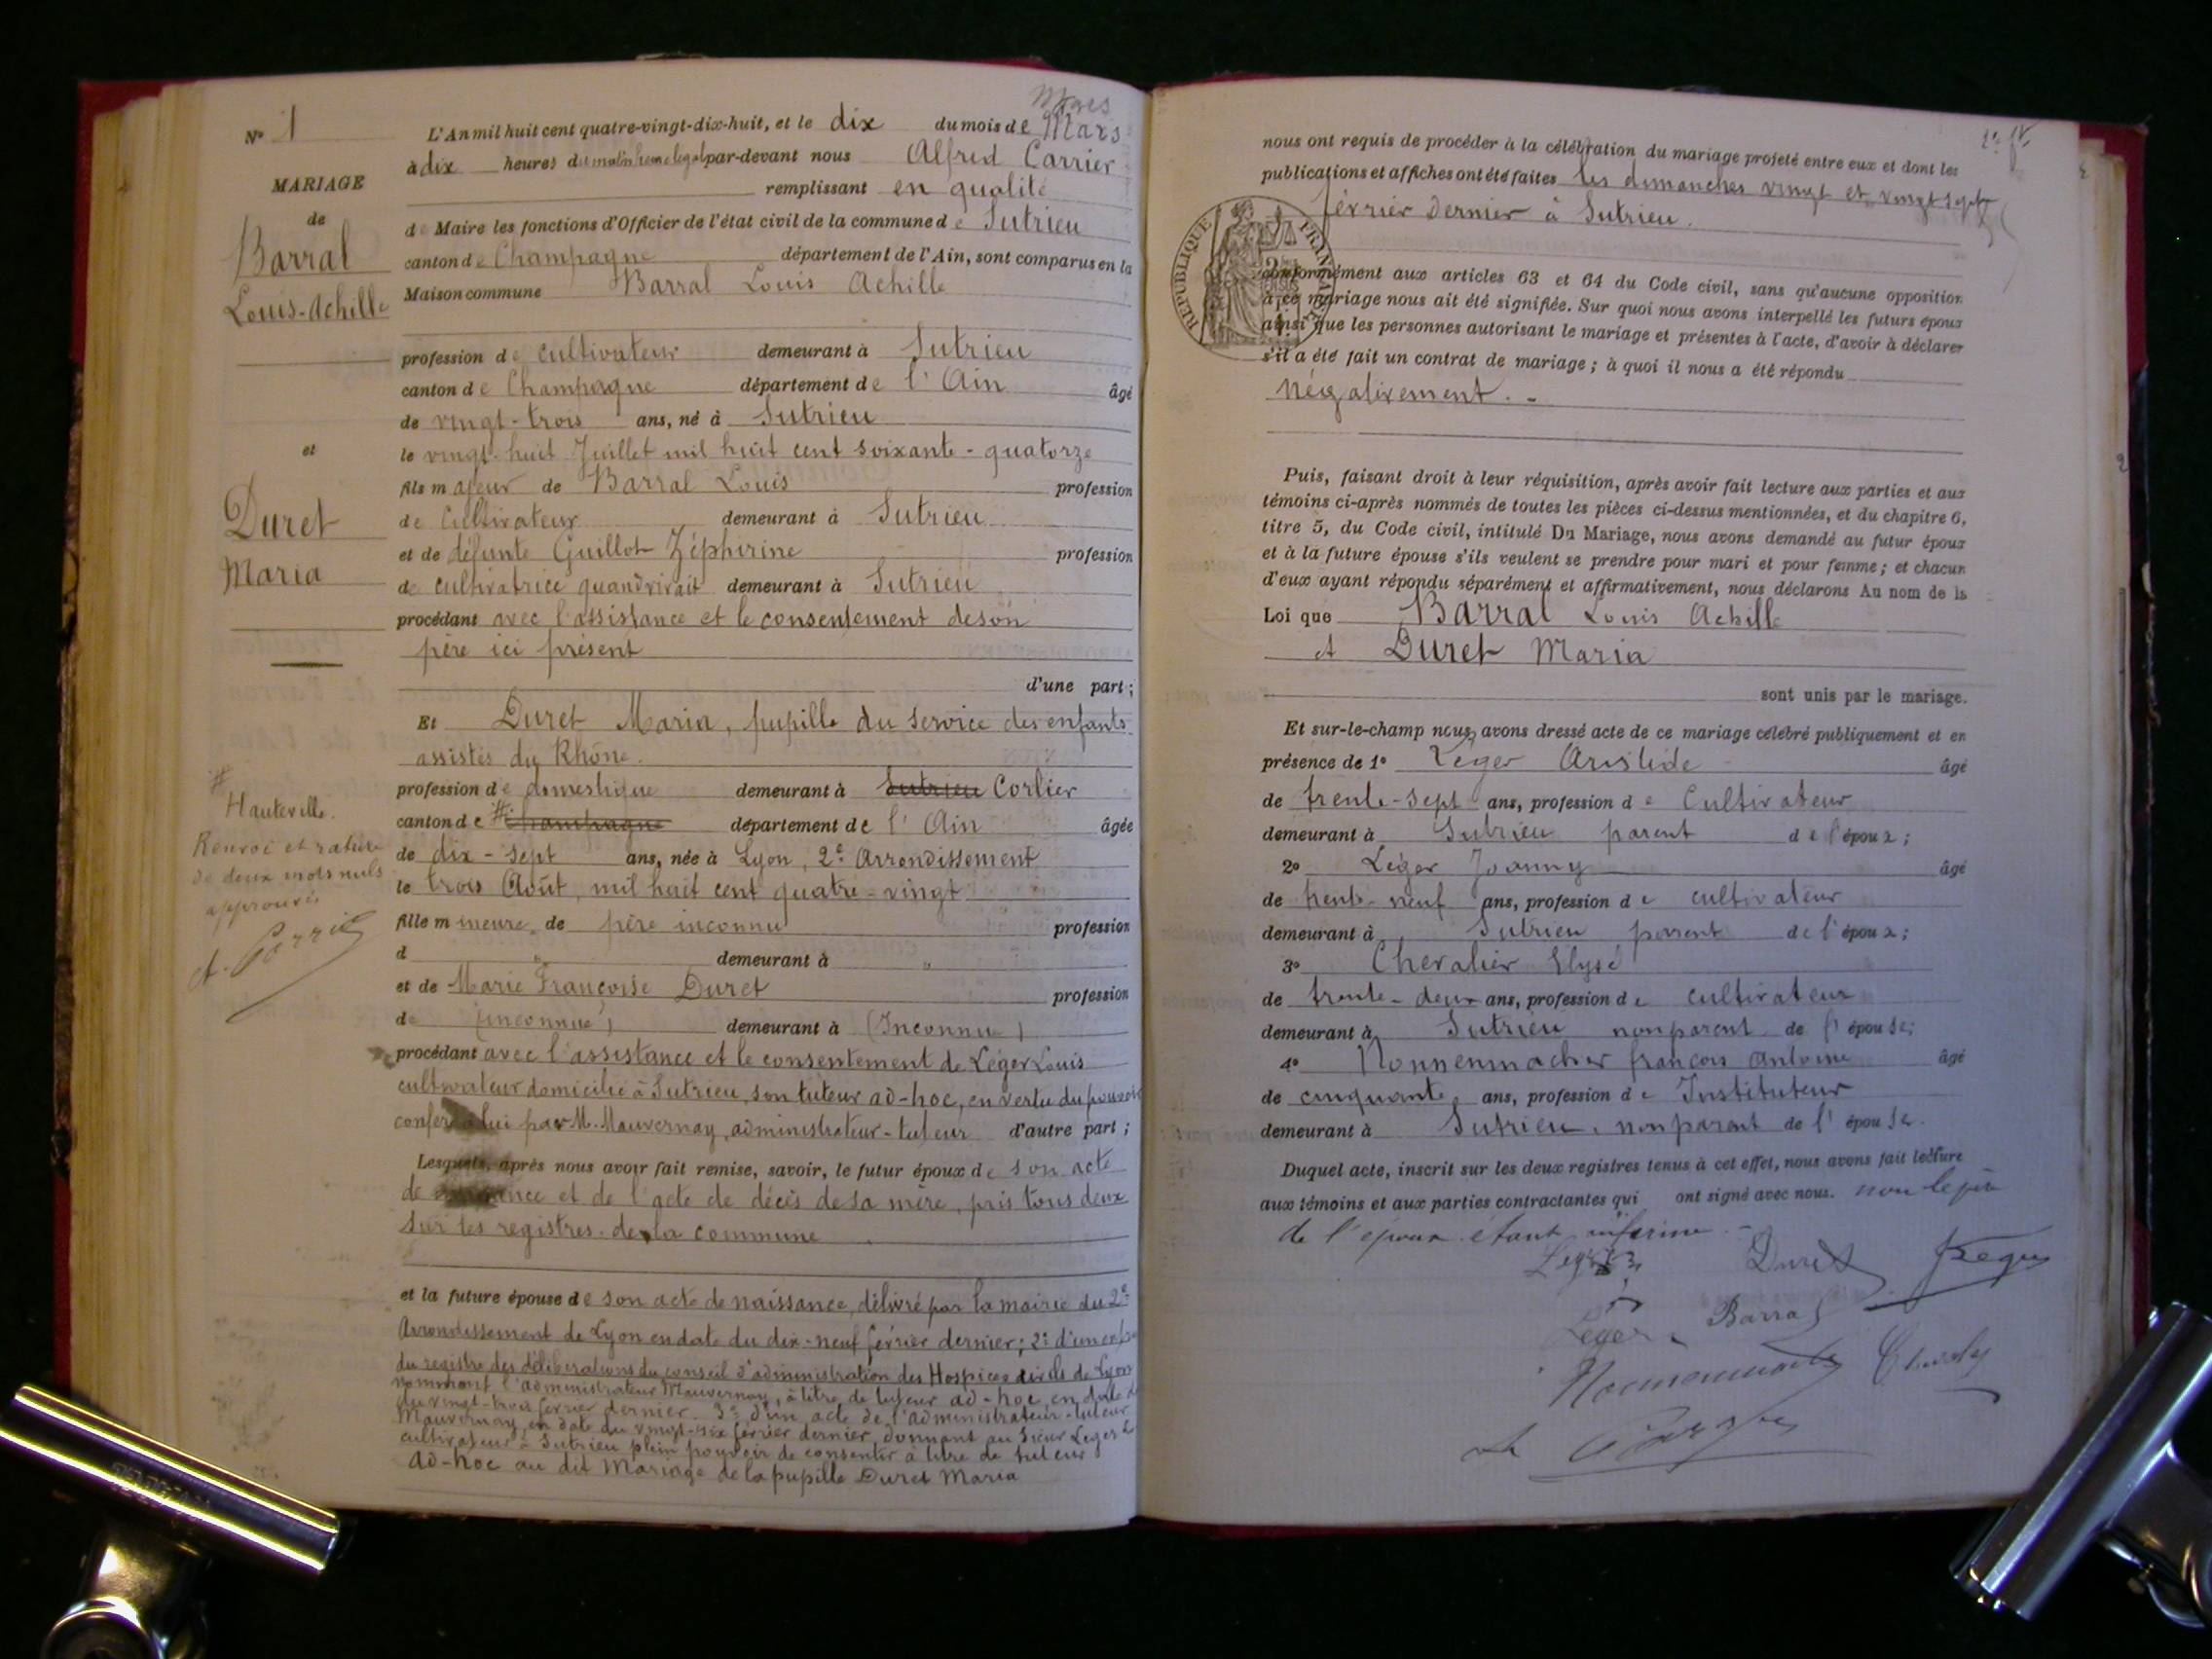 Nº 1
MARIAGE
de
Barral
Louis-Achille
et
Duret
Maria
#
Hauteville.
Renvoi et rature
de deux mots nuls
approuvés
A. Carrier
Mars
L'An mil huit cent quatre-vingt-dix-huit, et le dix du mois de Mars
à dix heures du matin heure légal par-devant nous Alfred Carrier
remplissant en qualité
de Maire les fonctions d'Officier de l'état civil de la commune de Sutrieu
canton de Champagne département de l'Ain, sont comparus en la
Maison commune Barral Louis Achille
profession de cultivateur demeurant à Sutrieu
canton de Champagne département de l'Ain âgé
de vingt-trois ans, né à Sutrieu
le vingt-huit Juillet mil huit cent soixante-quatorze
fils majeur de Barral Louis profession
de Cultivateur demeurant à Sutrieu
et de défunte Guillot Zéphirine profession
de cultivatrice quand vivait demeurant à Sutrieu
procédant avec l'assistance et le consentement de son
père ici présent
d'une part;
Et Duret Maria, pupille du service des enfants
assistés du Rhône.
profession de domestique demeurant à Sutrieu Corlier
canton de # Champagne département de l'Ain âgée
de dix-sept ans, née à Lyon, 2e Arrondissement
le trois Août, mil huit cent quatre-vingt
fille mineure de père inconnu profession
d " demeurant à "
et de Marie Françoise Duret profession
de (inconnue) demeurant à (Inconnu)
procédant avec l'assistance et le consentement de Léger Louis
cultivateur domicilié à Sutrieu, son tuteur ad-hoc, en vertu du pouvoir
conféré à lui par M. Mauvernay, administrateur-tuteur d'autre part;
Lesquels, après nous avoir fait remise, savoir, le futur époux de son acte
de naissance et de l'acte de décès de sa mère, pris tous deux
sur les registres de la commune
et la future épouse de son acte de naissance, délivré par la mairie du 2e
Arrondissement de Lyon en date du dix-neuf février dernier; 2º d'un
du registre des délibérations du conseil d'administration des Hospices civils de Lyon
nommant l'administrateur Mauvernay, à titre de tuteur ad-hoc, en date
du vingt-trois février dernier. 3º d'un acte de l'administrateur-tuteur
Mauvernay, en date du vingt-six février dernier, donnant au Sieur Léger L
cultivateur à Sutrieu plein pouvoir de consentir à titre de tuteur
ad-hoc au dit Mariage de la pupille Duret Maria
nous ont requis de procéder à la célébration du mariage projeté entre eux et dont les
publications et affiches ont été faites les dimanches vingt et vingt sept
février dernier à Sutrieu.
RÉPUBLIQUE FRANÇAISE
conformément aux articles 63 et 64 du Code civil, sans qu'aucune opposition
à ce mariage nous ait été signifiée. Sur quoi nous avons interpellé les futurs époux
ainsi que les personnes autorisant le mariage et présentes à l'acte, d'avoir à déclarer
s'il a été fait un contrat de mariage; à quoi il nous a été répondu
négativement. -
Puis, faisant droit à leur réquisition, après avoir fait lecture aux parties et aux
témoins ci-après nommés de toutes les pièces ci-dessus mentionnées, et du chapitre 6,
titre 5, du Code civil, intitulé Du Mariage, nous avons demandé au futur époux
et à la future épouse s'ils veulent se prendre pour mari et pour femme; et chacun
d'eux ayant répondu séparément et affirmativement, nous déclarons Au nom de la
Loi que Barral Louis Achille
et Duret Maria
sont unis par le mariage.
Et sur-le-champ nous avons dressé acte de ce mariage célébré publiquement et en
présence de 1º Léger Aristide âgé
de trente-sept ans, profession de Cultivateur
demeurant à Sutrieu parent de l'époux;
2º Léger Joanny âgé
de trente-neuf ans, profession de cultivateur
demeurant à Sutrieu parent de l'époux;
3º Chevalier Elysé
de trente-deux ans, profession de cultivateur
demeurant à Sutrieu non parent de l'épouse;
4º Nonnenmacher françois Antoine âgé
de cinquante ans, profession de Instituteur
demeurant à Sutrieu, non parent de l'épouse.
Duquel acte, inscrit sur les deux registres tenus à cet effet, nous avons fait lecture
aux témoins et aux parties contractantes qui ont signé avec nous. non le père
de l'époux étant infirme -
Léger Duret Léger
Léger Barral
Nonnenmacher
A. Carrier